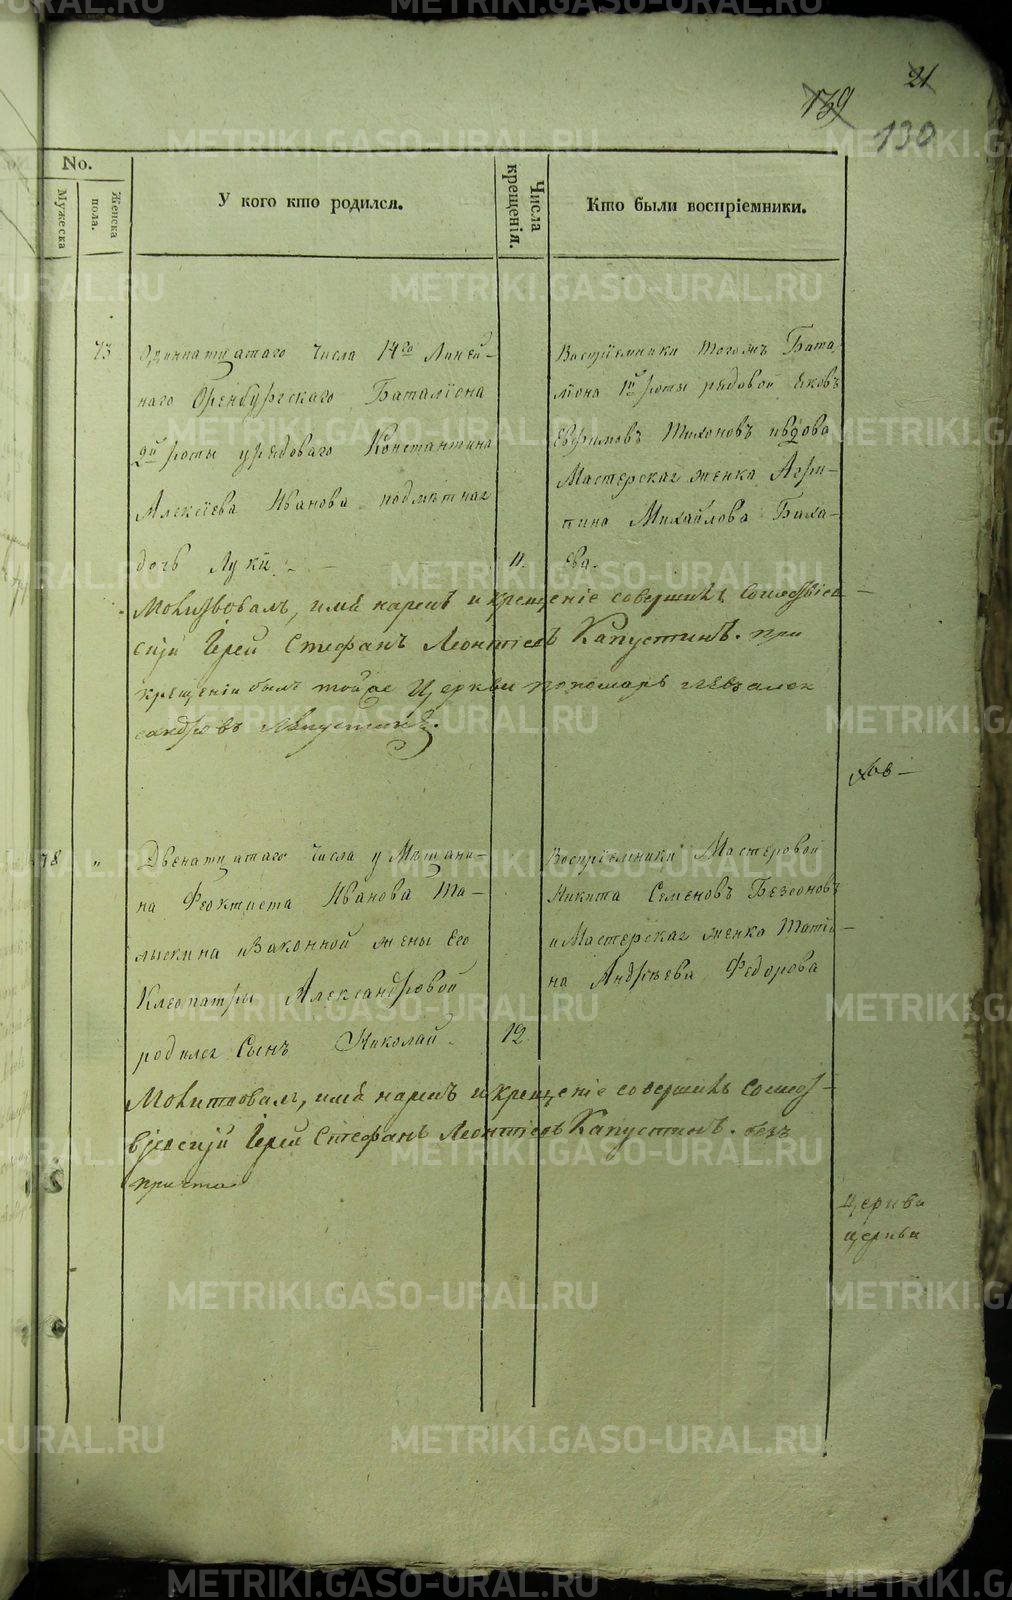 21
139
130
No.
Мужеска
Женска
пола.
У кого кто родился.
Числа
крещенія.
Кто были воспріемники.
73
Одиннатцатаго числа 14го Линей-
наго Оренбургскаго Баталіона
2й роты урядоваго Константина
Алексіева Иванова подметная
дочь Луки. -
11.
Воспріемники тогожъ Бата
ліона 1й роты рядовой Яковъ
Евфимовъ Тихоновъ ивдова
Мастерская женка Агри-
пина Михайлова
Молитвовалъ, имя нареч и крещеніе совершилъ
сий Іерей Стефанъ Леонтіевъ Капустинъ. при
крещеніи былъ тойже Церкви пономарь алек
сандровъ
78
"
Двенатцатаго числа у Мещани-
на Феоктиста Иванова
изаконной жены его
Клеопатры Александровой
родился сынъ Николай.
12
Воспріемники Мастеровой
Никита Семеновъ Безсоновъ
и Мастерская женка Татія-
на Андреева Федорова
Молитвовалъ, имя нареч и крещеніе совершилъ
Іерей Стефанъ Леонтіевъ Капустинъ. безъ
причта
Церкви
церкви
METRIKI.GASO-URAL.RU